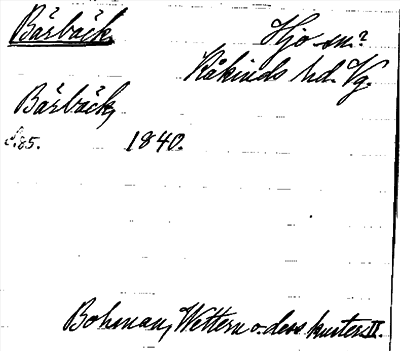 Bårbäck Hjo sn?
Kåkinds hd. Vg.
Bårbäck,
s. 65. 1840.
Bohman, Wettern o. dess kuster II.